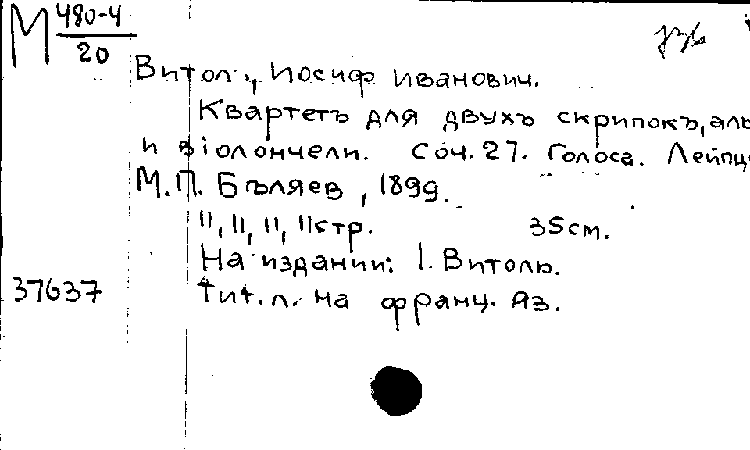 М 480-4
20
Витол., Иосиф Иванович.
Квартетъ для двухъ скрипокъ, аль
и віолончели. Соч. 27. Голоса. Лейпц
М.П. Бѣляев, 1899.
11, 11, 11, 11 стр. 35 см.
На издании: І. Витоль.
37637 Тит. л. на франц. яз.